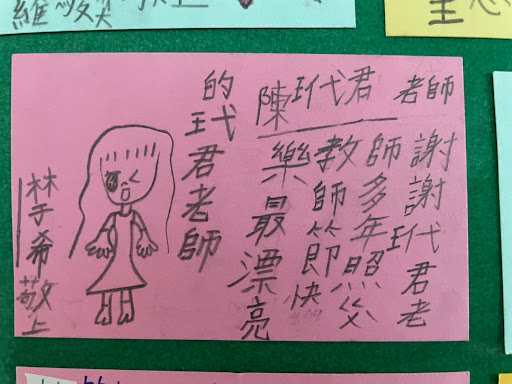 陳玳君 老師
謝謝玳君老
師多年照
教師節快
樂最漂亮
的玳君老師
林希敬上